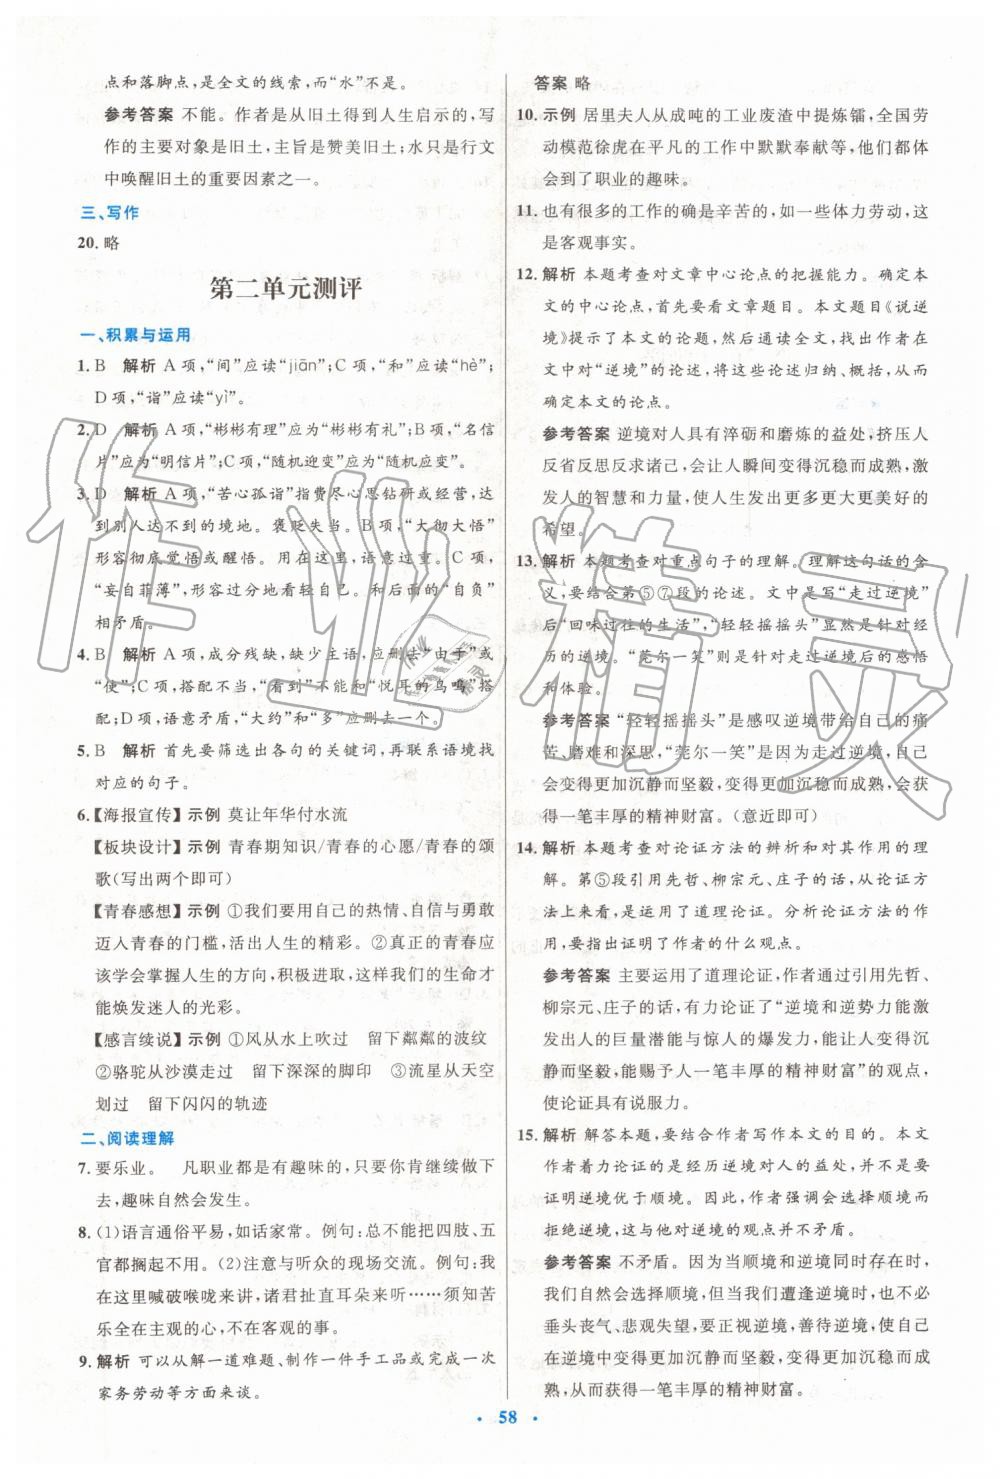 点和落脚点,是全文的线索,而“水”不是。
参考答案 不能。作者是从旧土得到人生启示的,写
作的主要对象是旧土,主旨是赞美旧土;水只是行文
中唤醒旧土的重要因素之一。
三、写作
20. 略
第二单元测评
一、积累与运用
1. B 解析 A 项,“间”应读“jiān”;C 项,“和”应读“hè”;
D 项,“诣”应读“yì”。
2. D 解析 A 项,“彬彬有理”应为“彬彬有礼”;B 项,“名信
片”应为“明信片”;C 项,“随机迎变”应为“随机应变”。
3. D 解析 A 项,“苦心孤诣”指费尽心思钻研或经营,达
到别人达不到的境地。褒贬失当。B 项,“大彻大悟”
形容彻底觉悟或醒悟。用在这里,语意过重。C 项,
“妄自菲薄”,形容过分地看轻自己。与后面的“自负”
相矛盾。
4. B 解析 A 项,成分残缺,缺少主语,应删去“由于”或
“使”;C 项,搭配不当,“看到”不能和“悦耳的鸟鸣”搭
配;D 项,语意矛盾,“大约”和“多”应删去一个。
5. B 解析 首先要筛选出各句的关键词,再联系语境找
对应的句子。
6.【海报宣传】示例 莫让年华付水流
【板块设计】示例 青春期知识/青春的心愿/青春的颂
歌(写出两个即可)
【青春感想】示例 ①我们要用自己的热情、自信与勇敢
迈入青春的门槛,活出人生的精彩。②真正的青春应
该学会掌握人生的方向,积极进取,这样我们的生命才
能焕发迷人的光彩。
【感言续说】示例 ①风从水上吹过 留下粼粼的波纹
②骆驼从沙漠走过 留下深深的脚印 ③流星从天空
划过 留下闪闪的轨迹
二、阅读理解
7. 要乐业。 凡职业都是有趣味的,只要你肯继续做下
去,趣味自然会发生。
8. (1)语言通俗平易,如话家常。例句:总不能把四肢、五
官都搁起不用。(2)注意与听众的现场交流。例句:我
在这里喊破喉咙来讲,诸君扯直耳朵来听……须知苦
乐全在主观的心,不在客观的事。
9. 解析 可以从解一道难题、制作一件手工品或完成一次
家务劳动等方面来谈。
答案 略
10. 示例 居里夫人从成吨的工业废渣中提炼镭,全国劳
动模范徐虎在平凡的工作中默默奉献等,他们都体
会到了职业的趣味。
11. 也有很多的工作的确是辛苦的,如一些体力劳动,这
是客观事实。
12. 解析 本题考查对文章中心论点的把握能力。确定本
文的中心论点,首先要看文章题目。本文题目《说逆
境》提示了本文的论题,然后通读全文,找出作者在
文中对“逆境”的论述,将这些论述归纳、概括,从而
确定本文的论点。
参考答案 逆境对人具有淬砺和磨炼的益处,挤压人
反省反思反求诸己,会让人瞬间变得沉稳而成熟,激
发人的智慧和力量,使人生发出更多更大更美好的
希望。
13. 解析 本题考查对重点句子的理解。理解这句话的含
义,要结合第⑤⑦段的论述。文中是写“走过逆境”
后“回味过往的生活”,“轻轻摇摇头”显然是针对经
历的逆境。“莞尔一笑”则是针对走过逆境后的感悟
和体验。
参考答案 “轻轻摇摇头”是感叹逆境带给自己的痛
苦、磨难和深思,“莞尔一笑”是因为走过逆境,自己
会变得更加沉静而坚毅,变得更加沉稳而成熟,会获
得一笔丰厚的精神财富。(意近即可)
14. 解析 本题考查对论证方法的辨析和对其作用的理
解。第⑤段引用先哲、柳宗元、庄子的话,从论证方
法上来看,是运用了道理论证。分析论证方法的作
用,要指出证明了作者的什么观点。
参考答案 主要运用了道理论证,作者通过引用先哲、
柳宗元、庄子的话,有力论证了“逆境和逆势力能激
发出人的巨量潜能与惊人的爆发力,能让人变得沉
静而坚毅,能赐予人一笔丰厚的精神财富”的观点,
使论证具有说服力。
15. 解析 解答本题,要结合作者写作本文的目的。本文
作者着力论证的是经历逆境对人的益处,并不是要
证明逆境优于顺境。因此,作者强调会选择顺境而
拒绝逆境,这与他对逆境的观点并不矛盾。
参考答案 不矛盾。因为当顺境和逆境同时存在时,
我们当然要选择顺境,但当我们遭逢逆境时,不必
垂头丧气、悲观失望,要正视逆境,善待逆境,使自己
在逆境中变得更加沉静而坚毅,变得更加沉稳而成
熟,从而获得一笔丰厚的精神财富。
58
作业精灵